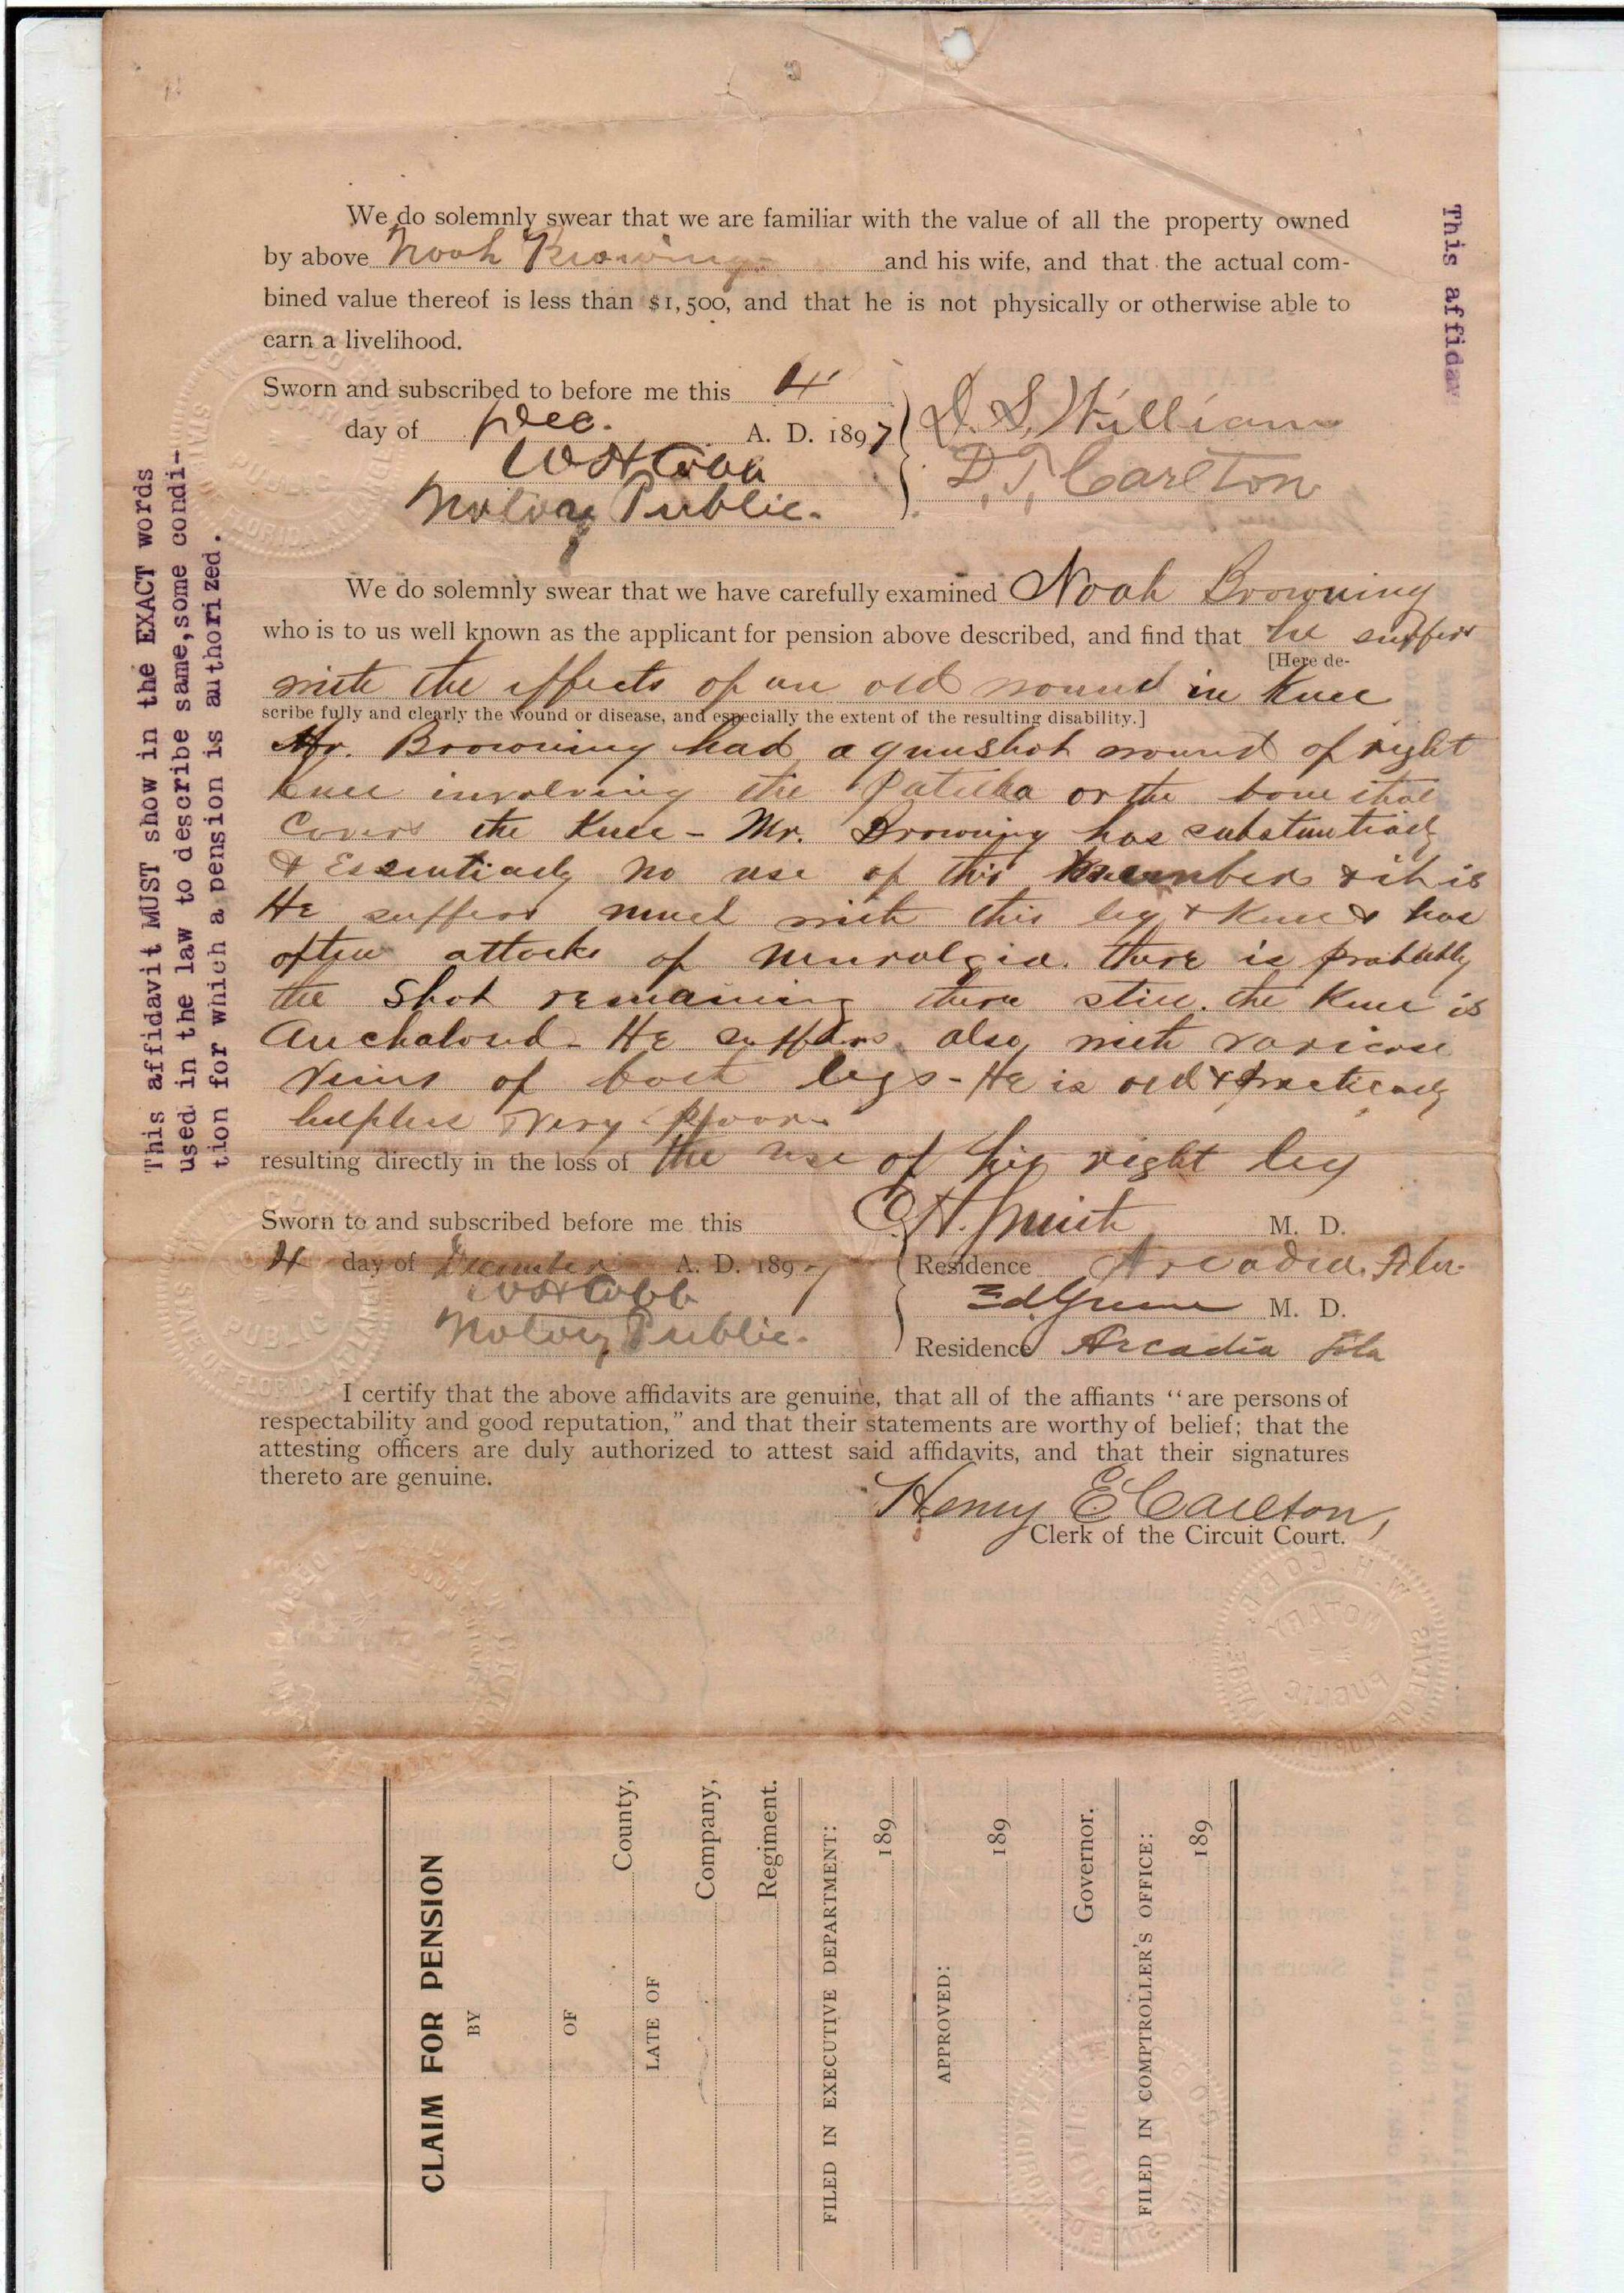 We do solemnly swear that we are familiar with the value of all the property owned
by above Noah Browning and his wife, and that the actual com-
bined value thereof is less than $1,500, and that he is not physically or otherwise able to
earn a livelihood.
Sworn and subscribed to before me this 4
day of Dec. A. D. 1897
D. S. Williams
W H Cobb
D. T. Carlton
Notary Public.
We do solemnly swear that we have carefully examined Noah Browning
who is to us well known as the applicant for pension above described, and find that he suffers
[Here de-
with the effects of an old wound in Knee
scribe fully and clearly the wound or disease, and especially the extent of the resulting disability.]
Mr. Browning had a gunshot wound of right
Knee involving the Patella or the bone that
Covers the Knee - Mr. Browning has substantially
& Essentially no use of this member & it is
He suffers much with this leg & Knee & has
often attacks of neuralgia. there is probably
the Shot remaining there still. the Knee is
Anchalosed - He suffers also with varicose
Veins of both legs - He is old & practically
helpless very poor
resulting directly in the loss of the use of his right leg
Sworn to and subscribed before me this
C. H. Smith M. D.
4 day of December A. D. 1897
Residence Arcadia, Fla.
W H Cobb
Ed Greene M. D.
Notary Public.
Residence Arcadia Fla
I certify that the above affidavits are genuine, that all of the affiants "are persons of
respectability and good reputation," and that their statements are worthy of belief; that the
attesting officers are duly authorized to attest said affidavits, and that their signatures
thereto are genuine.
Henry E Carlton,
Clerk of the Circuit Court.
This affidavit MUST show in the EXACT words
used in the law to describe same,some condi-
tion for which a pension is authorized.
This affidav
W. H. COBB
NOTARY
PUBLIC
STATE OF FLORIDA AT LARGE
CLAIM FOR PENSION
BY
OF
County,
LATE OF
Company,
Regiment.
FILED IN EXECUTIVE DEPARTMENT:
189
APPROVED:
189
Governor.
FILED IN COMPTROLLER'S OFFICE:
189